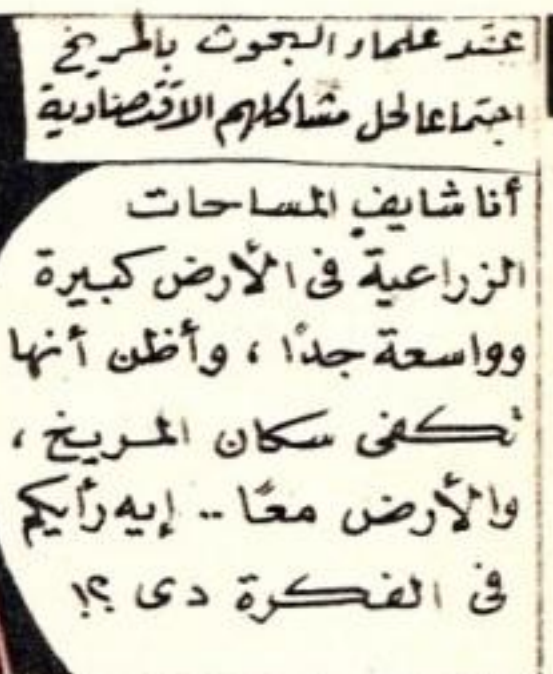 عقد علماء البحوث بالمريخ
اجتماعا لحل مشاكلهم الاقتصادية
أنا شايف المساحات
الزراعية فى الأرض كبيرة
وواسعة جدًا ، وأظن أنها
تكفى سكان المريخ ،
والأرض معًا .. إيه رأيكم
فى الفكرة دى ؟!